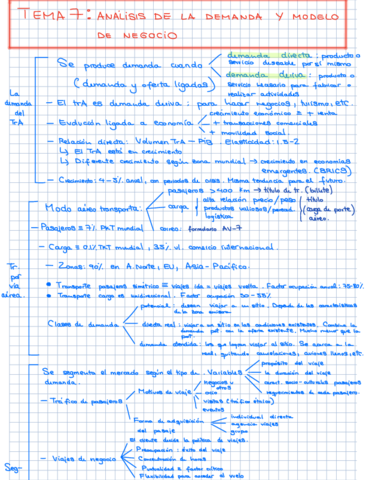 TEMA 7: ANÁLISIS DE LA DEMANDA Y MODELO
DE NEGOCIO
La demanda del TrA
Se produce demanda cuando
(demanda y oferta ligadas)
demanda directa: producto o
servicio deseable por sí mismo
demanda deriva: producto o
servicio necesario para fabricar o
realizar actividades
- El TrA es demanda deriva: para hacer negocios, turismo, etc
- Evolución ligada a economía
crecimiento económico = + renta
+ transacciones comerciales
+ movilidad social.
- Relación directa: Volumen TrA - PIB. Elasticidad: 1.5-2
↳ El TrA está en crecimiento
↳ Diferente crecimiento según zona mundial → crecimiento en economías
emergentes. (BRICS)
- Crecimiento: 4-5% anual, con periodos de crisis. Misma tendencia para el futuro.
Tr. por vía aérea
Modo aéreo transporta:
pasajeros > 400 km → título de tr. (billete)
carga
alta relación precio/peso
productos valiosos/pereced.
logística
título
(carta de porte)
aéreo.
correo: formulario AV-7
- Pasajeros = 7% PKT mundial
- Carga ≤ 0.1% TKT mundial, 35% vl. comercio internacional.
- Zonas: 90% en A. Norte, EU, Asia-Pacífico.
• Transporte pasajeros simétrico = viajes ida = viajes vuelta. Factor ocupación anual: 75-80%.
• Transporte carga es unidireccional. Factor ocupación 50-55%
Clases de demanda
potencial: desean viajar a un sitio. Depende de las características
de la zona emisora
directa real: viajar a un sitio en las condiciones existentes. Combina la
demanda pot. con la oferta existente. Mucho menor que la
pot.
demanda atendida: los que logran viajar al sitio. Se acerca a la
real, quitando cancelaciones, aviones llenos, etc.
Seg-
Se segmenta el mercado según el tipo de
demanda.
Variables
propósito del viaje
la duración del viaje
caract. socio-culturales pasajeros
requerimientos de cada pasajero.
- Tráfico de pasajeros
Motivos de viaje
negocios u
otros
ocio
visitas (tráfico étnico)
eventos
Forma de adquisición
del pasaje
individual directa
agencia viajes
grupo
- Viajes de negocio
El cliente decide la política de viajes.
Preocupación: éxito del viaje
Concentración de horas
Puntualidad = factor crítico
Flexibilidad para acceder al vuelo